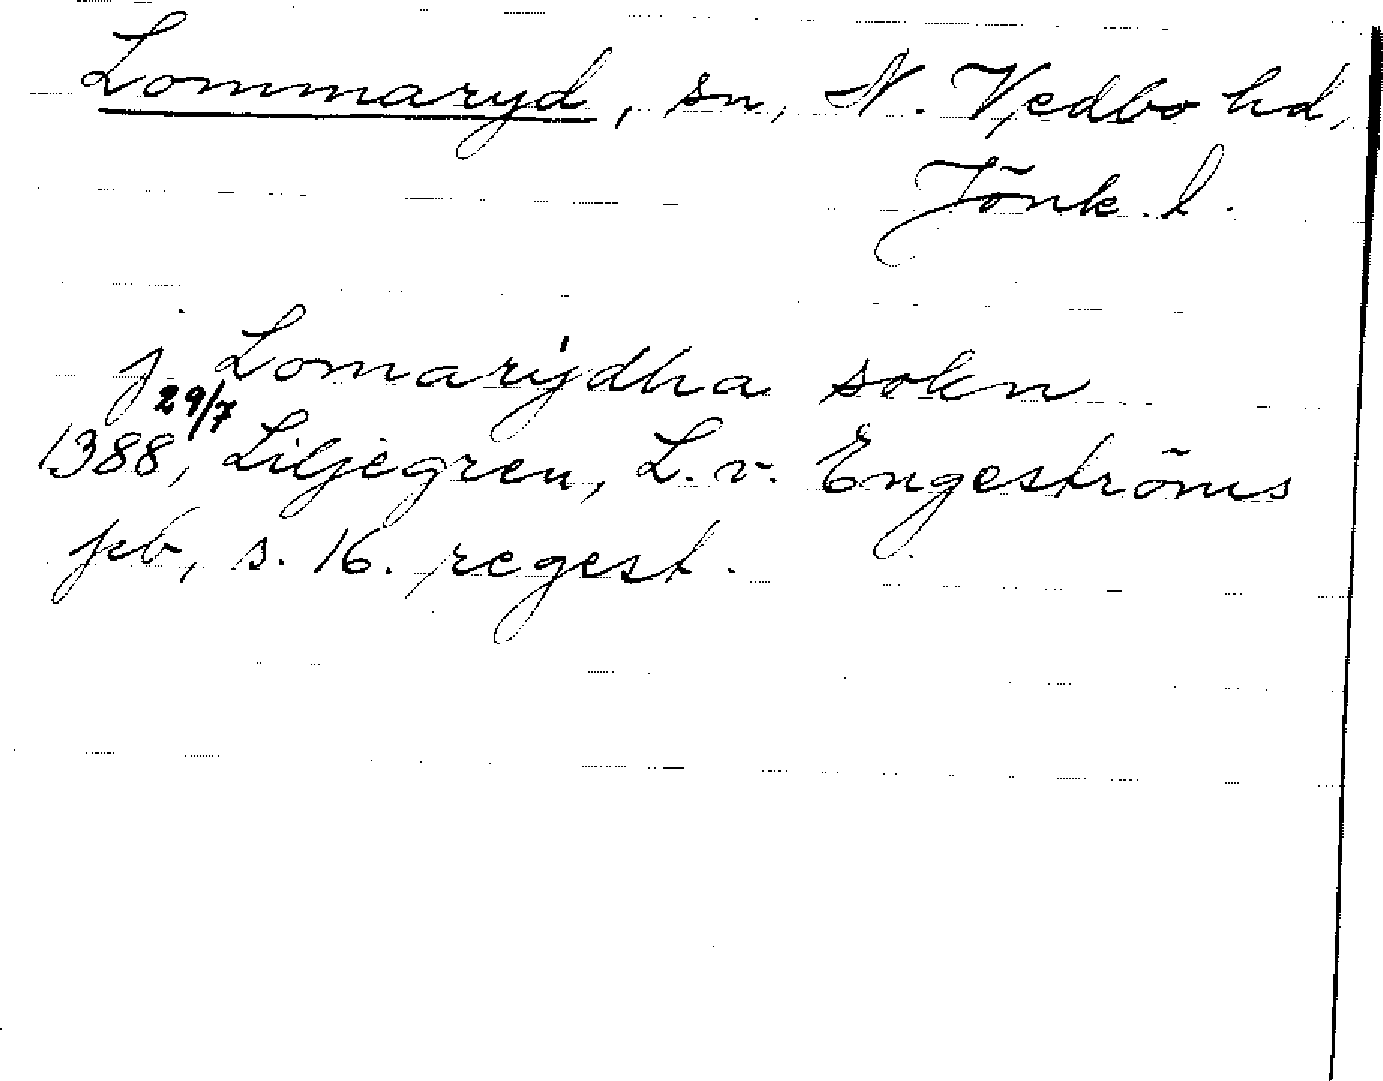 Lommaryd, sn, N. Vedbo hd,
Jönk. l.
j Lomarydha sokn
1388 29/7, Liljegren, L. v. Engeströms
pb, s. 16. regest.